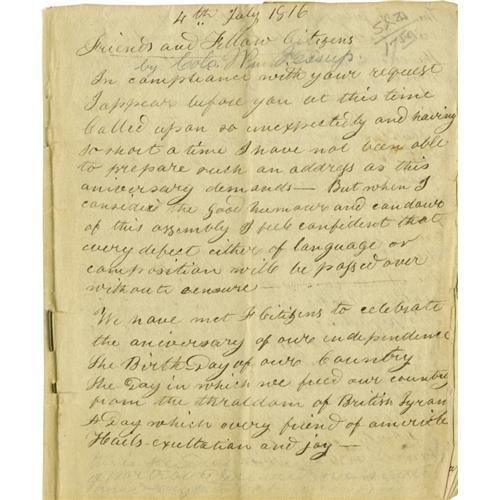 4th July 1816
Friends and Fellow Citizens
by Wm Jessup.
In compliance with your request
I appear before you at this time
Called upon so unexpectedly and having
so short a time I have not been able
to prepare such an address as this
aniversary demands— But when I
consider the good humour and candour
of this assembly I feel confident that
every defect either of language or
composition will be passed over
without censure —
We have met F Citizens to celebrate
the aniversary of our independence
The Birth Day of our Country
The Day in which we freed our country
from the thraldom of British Tyran
A Day which every friend of America
Hails exultation and joy —